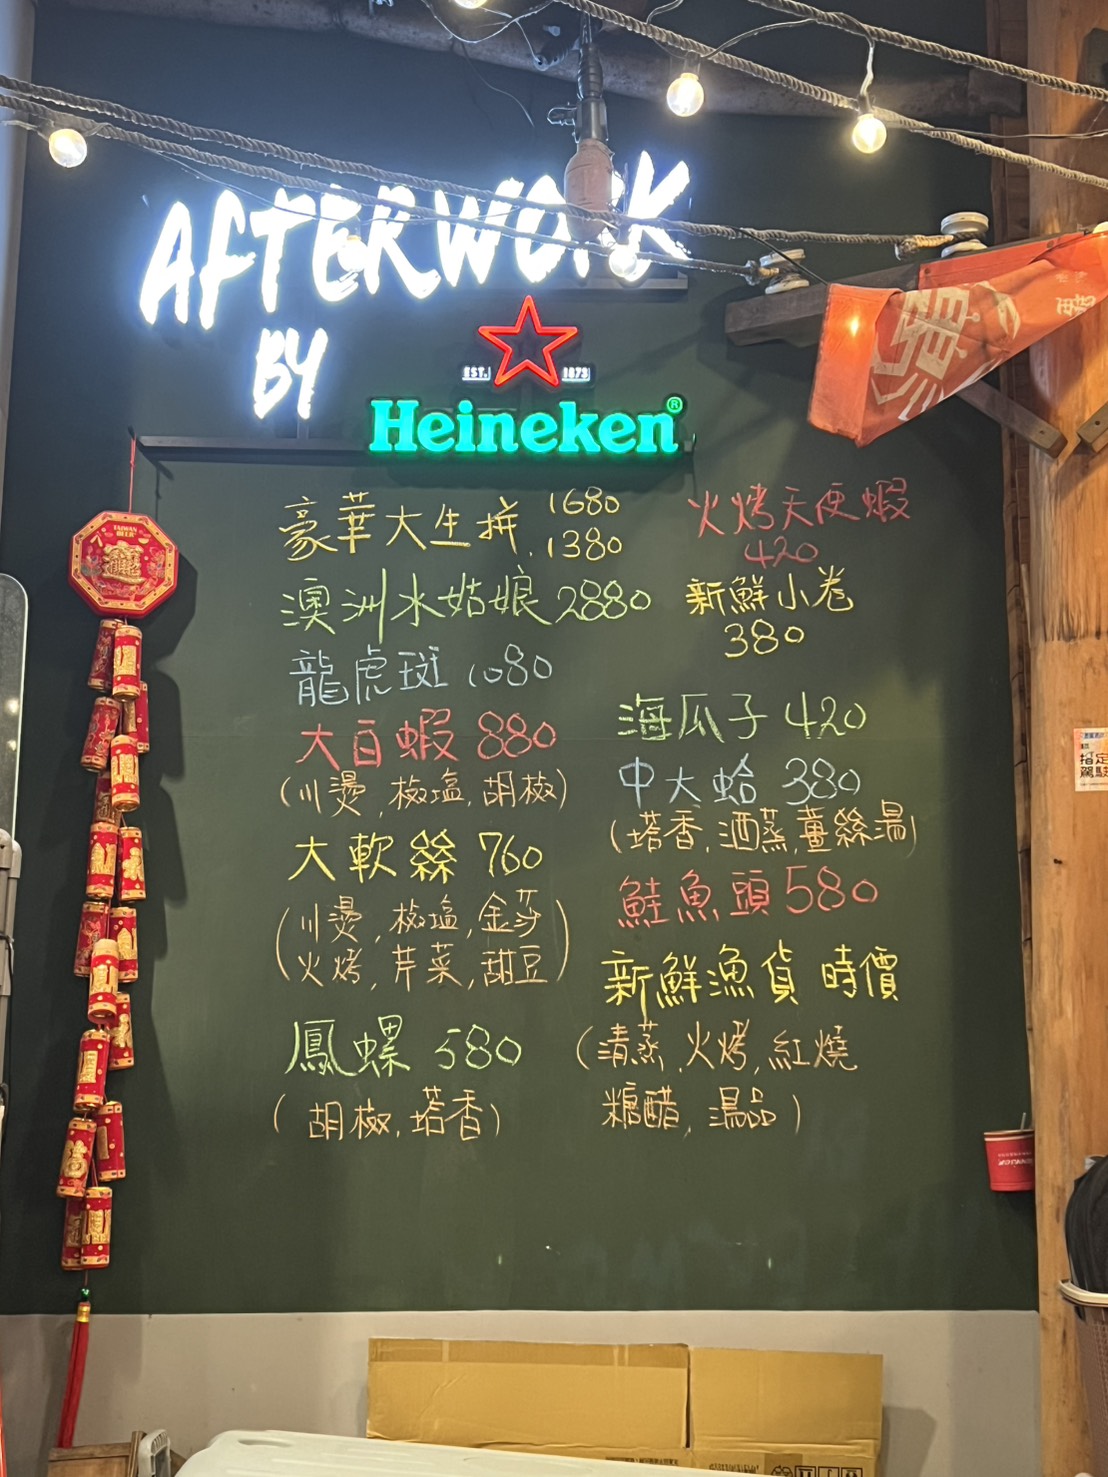 AFTERWORK
BY
EST. 1873
Heineken®
TAIWAN
BEER
豪華大生拼 1680
1380
澳洲水姑娘 2880
龍虎斑 1080
大白蝦 880
(川燙,椒塩,胡椒)
大軟絲 760
(川燙,椒塩,金莎
火烤,芹菜,甜豆)
鳳螺 580
(胡椒,塔香)
火烤天使蝦
420
新鮮小卷
380
海瓜子 420
中大蛤 380
(塔香,酒蒸,薑絲湯)
鮭魚頭 580
新鮮漁貨 時價
(清蒸,火烤,紅燒
糖醋,湯品)
指定
駕駛